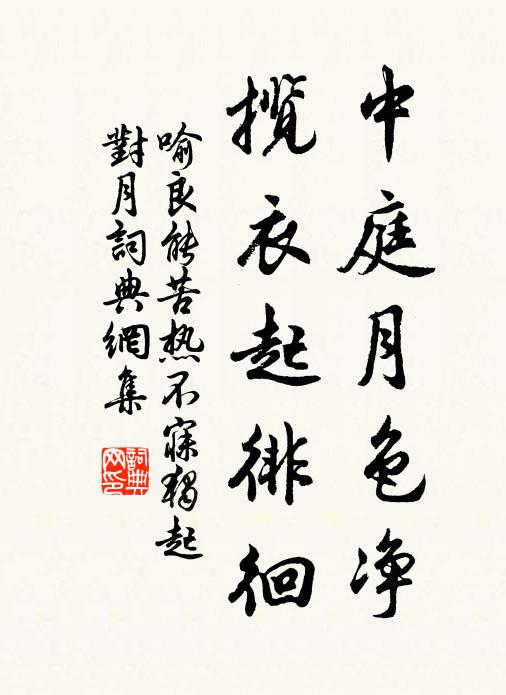 中庭月色净
揽衣起徘徊
喻良能苦热不寐獨起
對月詞典網集
詞典
网印